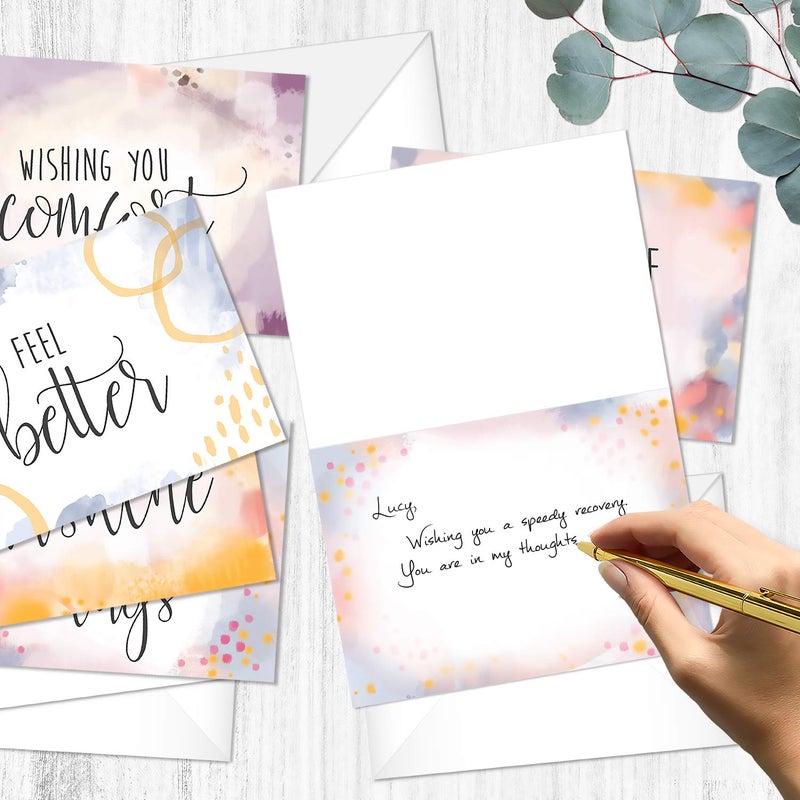 WISHING YOU
comfort
FEEL
better
Lucy,
Wishing you a speedy recovery.
You are in my thoughts